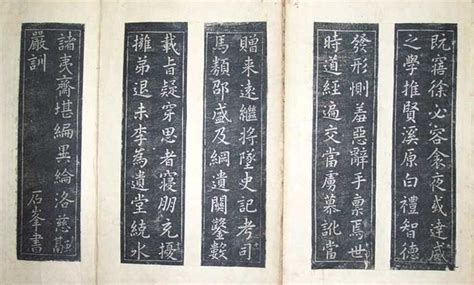 既寤徐必容食夜或達
之學推賢溪原白禮智德
發形惻羞惡辭手稟焉世
時道經遍交當慕訛當
贈来遠繼將隊史記考司
馬類邵盛及綱遺闢鑿數
載旨疑穿思者寢朋充擾
擁弟退未李為遺堂繞水
諸夷齋堪編異綸洛慈
嚴訓 石峯書